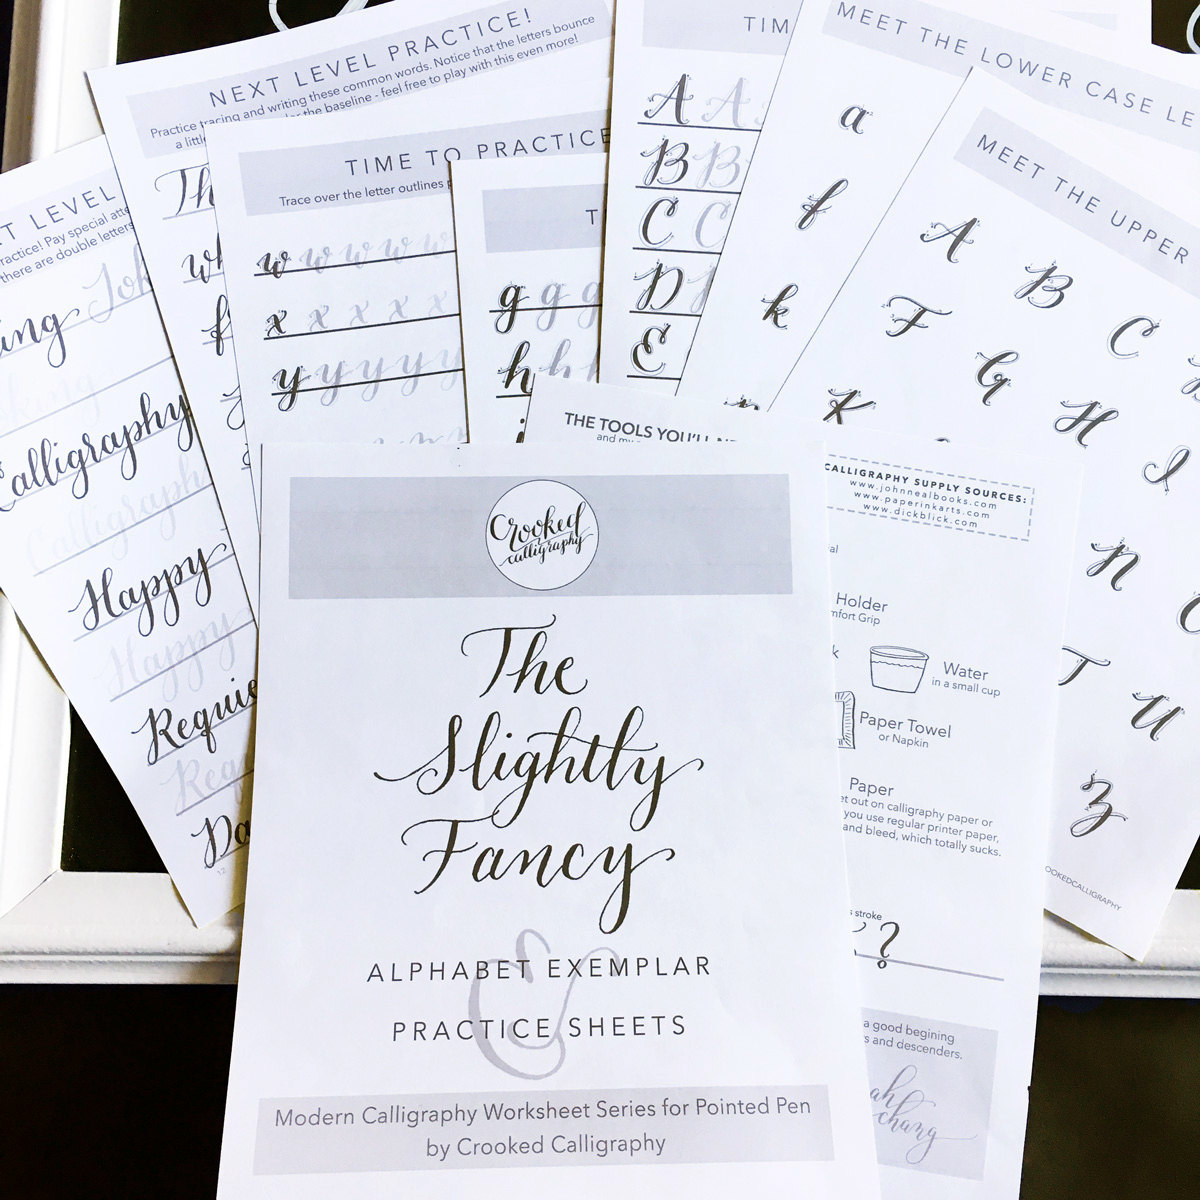 NEXT LEVEL PRACTICE!
Practice tracing and writing these common words. Notice that the letters bounce
a little
the baseline - feel free to play with this even more!
Th
f
LEVEL
Practice! Pay special
there are double letters
Joh
Calligraphy
Calligraphy
Happy
Happy
Requie
Requ
Da
12
TIME TO PRACTICE
Trace over the letter outlines
w w w w w
x x x x x
y y y y y
T
g g g
h h
TIM
A A A
B B B
C C
D D
E
MEET THE LOWER CASE LE
a
f
k
MEET THE UPPER
A
B
C
F
G
H
I
K
N
T
U
Z
OOKEDCALLIGRAPHY
THE TOOLS YOU'LL NE
and my
CALLIGRAPHY SUPPLY SOURCES:
www.johnnealbooks.com
www.paperinkarts.com
www.dickblick.com
Holder
mfort Grip
Water
in a small cup
Paper Towel
or Napkin
Paper
et out on calligraphy paper or
you use regular printer paper,
and bleed, which totally sucks.
stroke
?
a good begining
rs and descenders.
ah
chang
Crooked
calligraphy
The
Slightly
Fancy
&
ALPHABET EXEMPLAR
PRACTICE SHEETS
Modern Calligraphy Worksheet Series for Pointed Pen
by Crooked Calligraphy